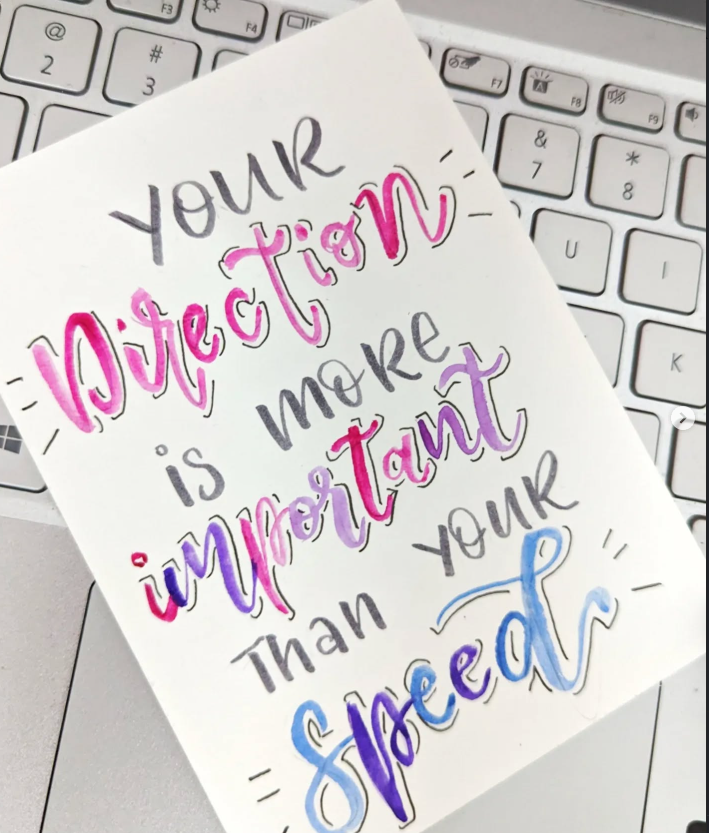 F3
F4
F7
F8
F9
@
2
#
3
&
7
*
8
U
I
K
YOUR
Direction
is more
important
Than YOUR
Speed